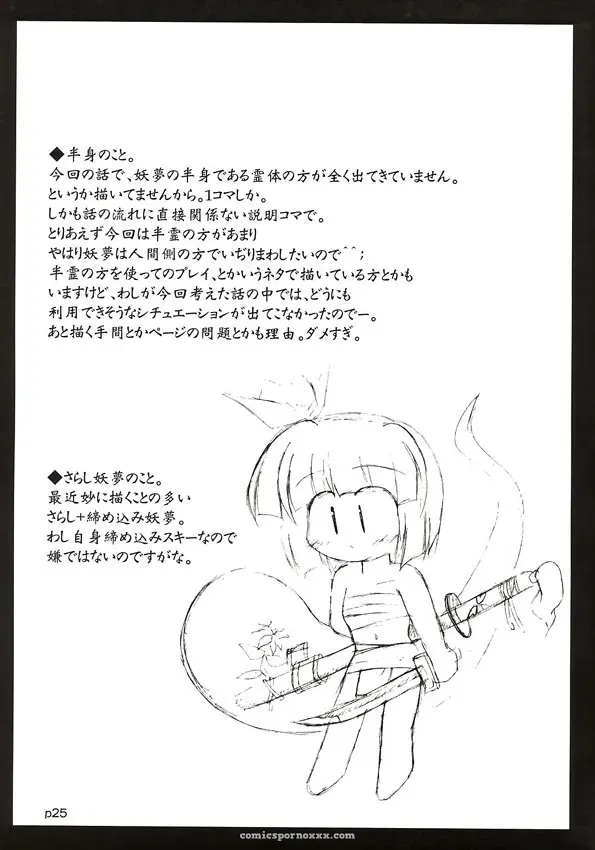 ◆半身のこと。
今回の話で、妖夢の半身である霊体の方が全く出てきていません。
というか描いてませんから。1コマしか。
しかも話の流れに直接関係ない説明コマで。
とりあえず今回は半霊の方があまり
やはり妖夢は人間側の方でいぢりまわしたいので^^;
半霊の方を使ってのプレイ、とかいうネタで描いている方とかも
いますけど、わしが今回考えた話の中では、どうにも
利用できそうなシチュエーションが出てこなかったのでー。
あと描く手間とかページの問題とかも理由。ダメすぎ。
◆さらし妖夢のこと。
最近妙に描くことの多い
さらし+締め込み妖夢。
わし自身締め込みスキーなので
嫌ではないのですがな。
p25
comicspornoxxx.com